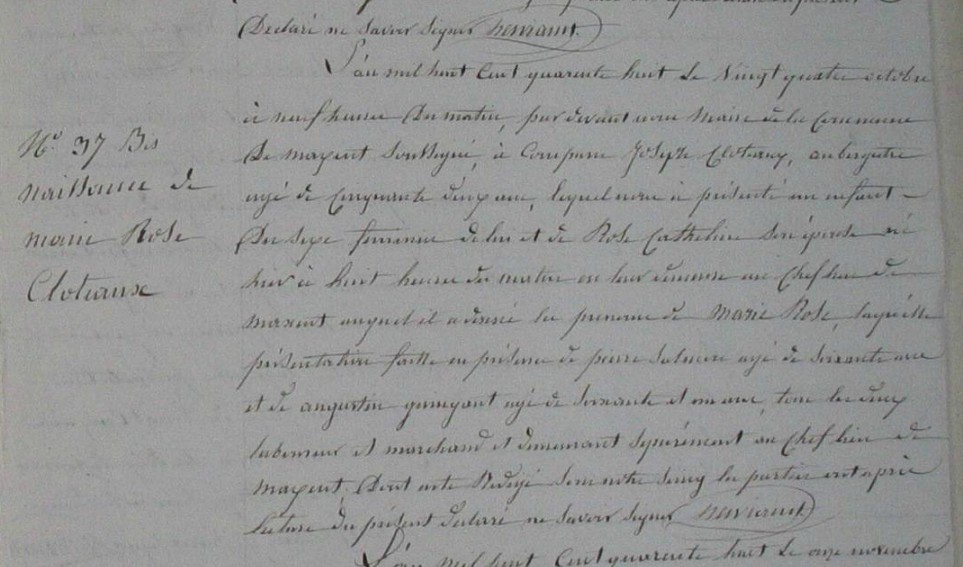 Declaré ne Savoir Signer henriant
L'an mil huit Cent quarente huit le vingt quatre octobre
à neuf heures Du matin, par devant nous Maire de la Commune
De maxent Soussigné, à Comparu Joseph Cloteaux, aubergiste
agé de Cinquante deux ans, lequel nous à présenté un enfant
Du sexe feminin de lui et de Rose Catheline Son épouse né
hier à huit heures du matin en leur demeure au Cheflieu de
maxent auquel il a donné les prenoms de Marie Rose, laquelle
présentation faitte en présence de pierre salmon agé de soixante ans
et de augustin agé de soixante et onze ans, tous les deux
laboureur et marchand et demeurant séparément au Cheflieu de
maxent, Dont acte Redigé Sous notre Seing les parties ont après
Lecture du présent Declaré ne Savoir Signer henriant
L'an mil huit Cent quarente huit le onze novembre
N° 37 Bis
naissance de
marie Rose
Cloteaux